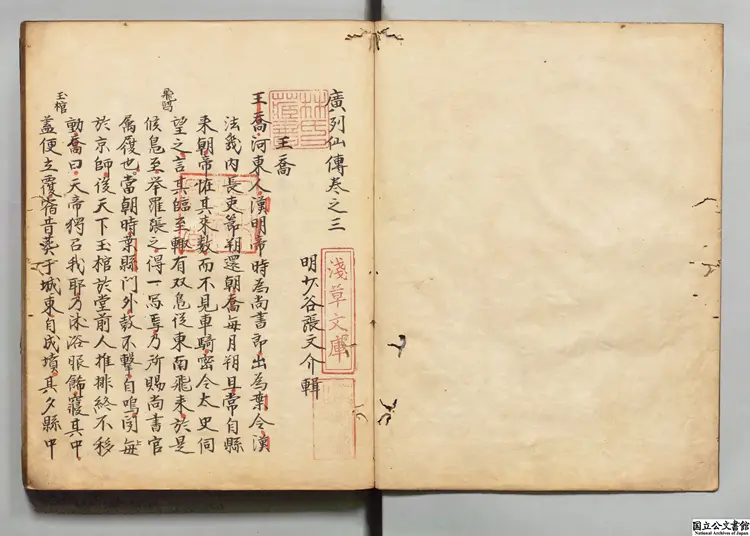 廣列仙傳巻之三
明少谷張文介輯
王喬
王喬河東人漢明帝時為尚書郎出為葉令漢
法畿内長吏節朔還朝喬每月朔旦常自縣
来朝帝恠其来数而不見車騎密令太史伺
望之言其臨至輙有双鳧従東南飛来於是
候鳧至举羅張之得一舄焉乃所賜尚書官
属履也當朝時葉縣門外鼓不擊自鳴聞
於京師後天下玉棺於堂前人推排終不移
動喬曰天帝獨召我耶乃沐浴服飾寢其中
盖便立覆宿昔葬于城東自成墳其夕縣中
玉棺
林氏藏書
淺草文庫
国立公文書館
National Archives of Japan